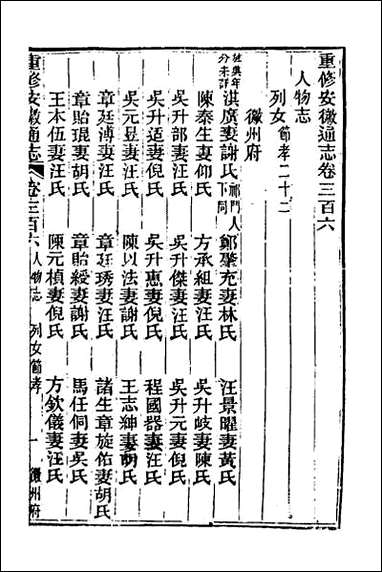 重修安徽通志卷三百六
人物志
列女 節孝二十二
徽州府
淇廣妻謝氏 祁門人下同 鄭聚充妻林氏 汪景曜妻黃氏
陳泰生妻仰氏 方承組妻汪氏 吳升岐妻陳氏
吳升部妻汪氏 吳升傑妻汪氏 吳升元妻倪氏
吳升适妻倪氏 吳升惠妻倪氏 程國器妻汪氏
吳元昱妻汪氏 陳以法妻謝氏 王志紳妻胡氏
章廷溥妻汪氏 章廷琇妻汪氏 諸生章旋佑妻胡氏
章貽琨妻胡氏 章貽綬妻謝氏 馬任伺妻吳氏
王本伍妻汪氏 陳元楨妻倪氏 方欽儀妻汪氏
重修安徽通志 卷三百六 人物志 列女節孝 一 徽州府